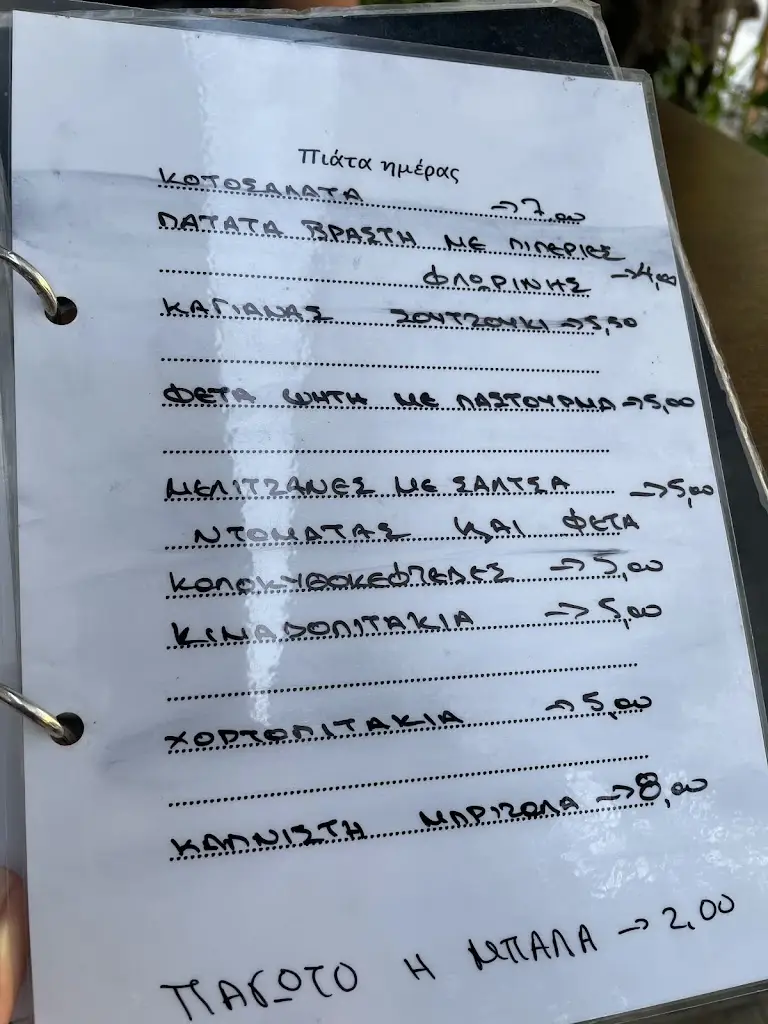 Πιάτα ημέρας
ΚΟΤΟΣΑΛΑΤΑ →7,00
ΠΑΤΑΤΑ ΒΡΑΣΤΗ ΜΕ ΠΙΠΕΡΙΕΣ
ΦΛΩΡΙΝΗΣ →4,00
ΚΑΓΙΑΝΑΣ ΣΟΥΤΖΟΥΚΙ →5,50
ΦΕΤΑ ΨΗΤΗ ΜΕ ΠΑΣΤΟΥΡΜΑ →5,00
ΜΕΛΙΤΖΑΝΕΣ ΜΕ ΣΑΛΤΣΑ →5,00
ΝΤΟΜΑΤΑΣ ΚΑΙ ΦΕΤΑ
ΚΟΛΟΚΥΘΟΚΕΦΤΕΔΕΣ →5,00
ΚΙΜΑΔΟΠΙΤΑΚΙΑ →5,00
ΧΟΡΤΟΠΙΤΑΚΙΑ →5,00
ΚΑΠΝΙΣΤΗ ΜΠΡΙΖΟΛΑ →8,00
ΠΑΓΩΤΟ Η ΜΠΑΛΑ →2,00